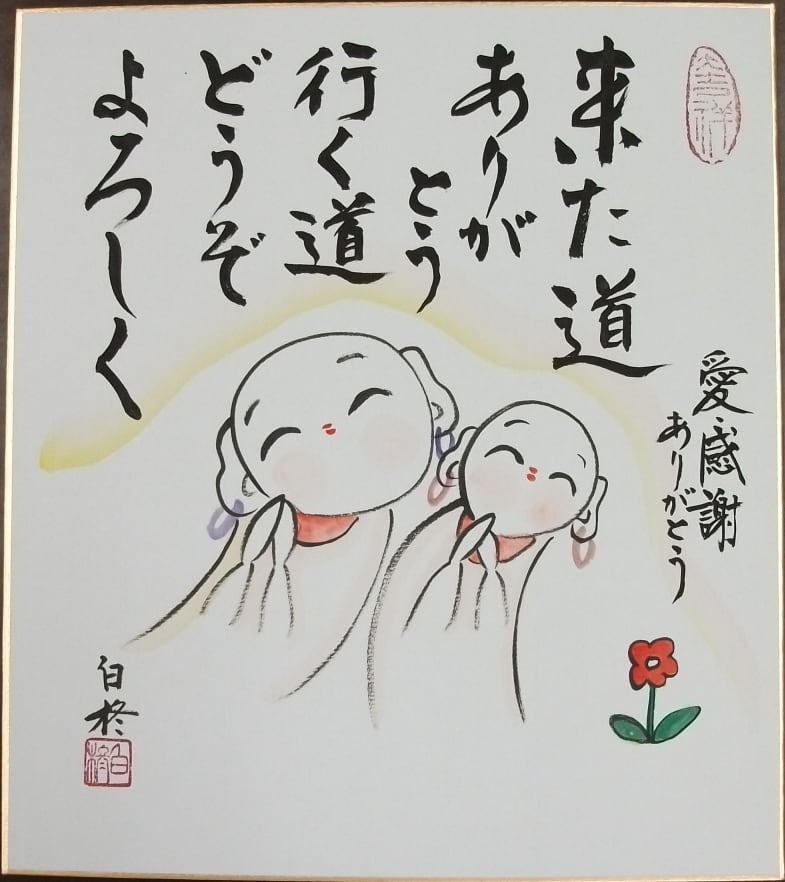 来た道
ありが
とう
行く道
どうぞ
よろしく
愛・感謝
ありがとう
白柊